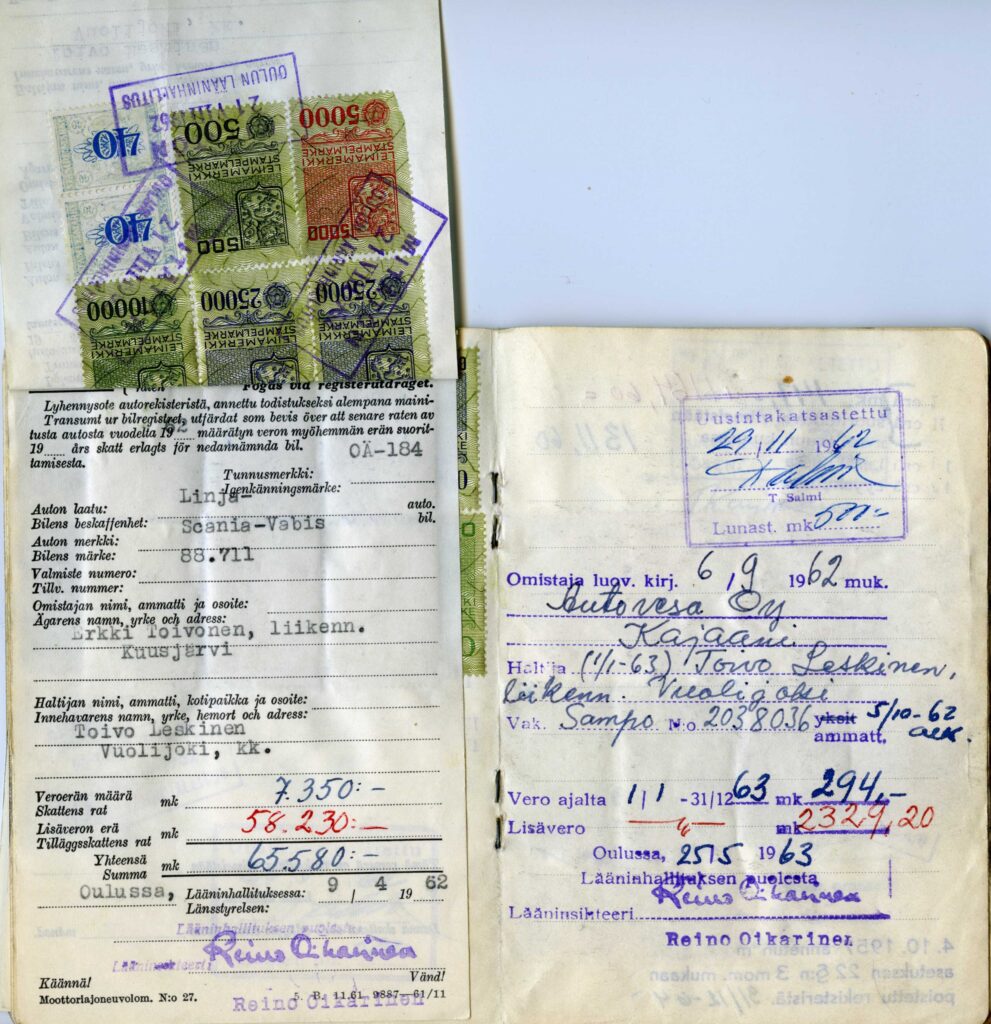 OULUN LÄÄNINHALLITUS
21 VIII 1962
40
500
LEIMAMERKKI
STÄMPELMARKE
500
5000
LEIMAMERKKI
STÄMPELMARKE
5000
40
10000
LEIMAMERKKI
STÄMPELMARKE
25000
LEIMAMERKKI
STÄMPELMARKE
25000
LEIMAMERKKI
STÄMPELMARKE
Fogas via registerutdraget.
Lyhennysote autorekisteristä, annettu todistukseksi alempana maini-
Transumt ur bilregistret, utfärdat som bevis över att senare raten av
tusta autosta vuodelta 19 määrätyn veron myöhemmän erän suorit-
19 års skatt erlagts för nedannämnda bil.
tamisesta.
OÄ-184
Tunnusmerkki:
Igenkänningsmärke:
Linja-
Auton laatu: auto.
Bilens beskaffenhet: bil.
Scania-Vabis
Auton merkki:
Bilens märke:
88.711
Valmiste numero:
Tillv. nummer:
Omistajan nimi, ammatti ja osoite:
Ägarens namn, yrke och adress:
Erkki Toivonen, liikenn.
Kuusjärvi
Haltijan nimi, ammatti, kotipaikka ja osoite:
Innehavarens namn, yrke, hemort och adress:
Toivo Leskinen
Vuolijoki, kk.
Veroerän määrä mk 7.350:-
Skattens rat
Lisäveron erä mk 58.230:-
Tilläggsskattens rat
Yhteensä mk 65.580:-
Summa
Oulussa, Lääninhallituksessa: 9 / 4 19 62
Länsstyrelsen:
Lääninhallituksen puolesta
Lääninsihteeri Reino Oikarinen
Käännä! Vänd!
Moottoriajoneuvolom. N:o 27. 5. B. 11.61 9887—61/11
Reino Oikarinen
Uusintakatsastettu
29/11 1962
T. Salmi
Lunast. mk 500:-
Omistaja luov. kirj. 6/9 1962 muk.
Autovesa Oy
Kajaani
Haltija (1/1-63) Toivo Leskinen,
liikenn. Vuolijoki
Vak. Sampo N:o 2038036 yksit 5/10-62
ammatt. alk.
Vero ajalta 1/1 -31/12 63 mk 294,-
Lisävero —"— mk 2329,20
Oulussa, 25/5 1963
Lääninhallituksen puolesta
Reino Oikarinen
Lääninsihteeri
Reino Oikarinen